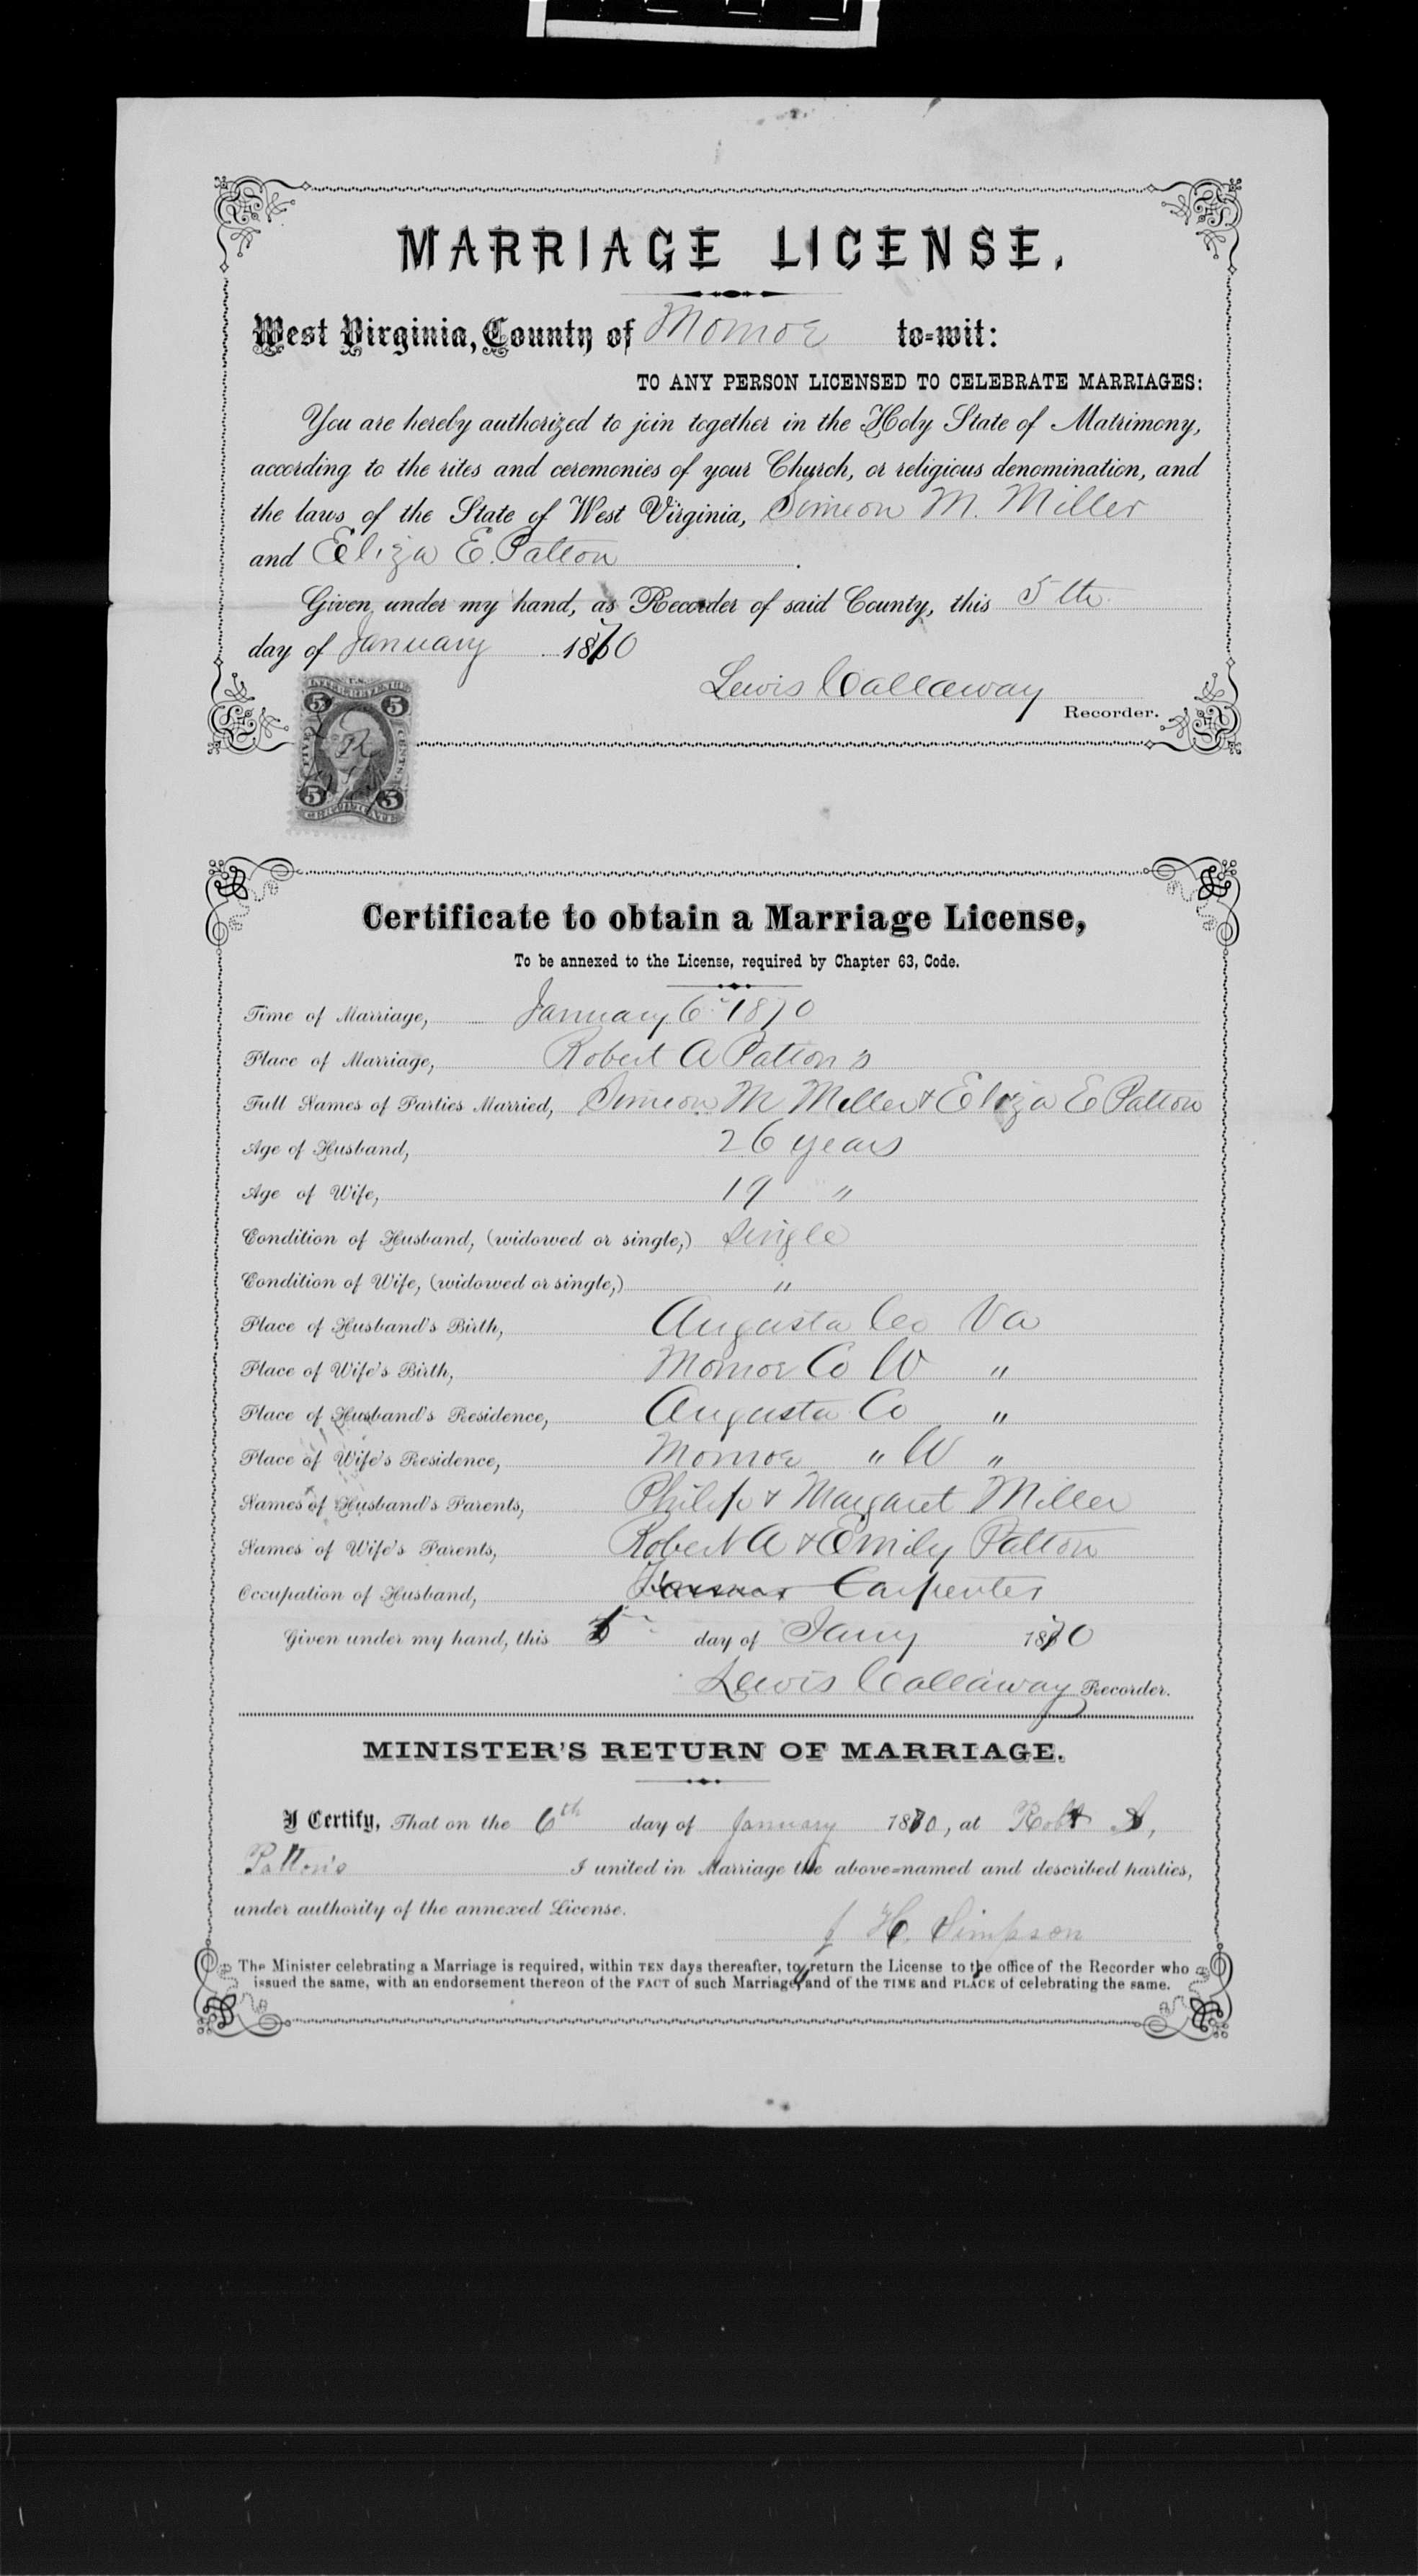 MARRIAGE LICENSE.
West Virginia, County of Monroe to=wit:
TO ANY PERSON LICENSED TO CELEBRATE MARRIAGES:
You are hereby authorized to join together in the Holy State of Matrimony,
according to the rites and ceremonies of your Church, or religious denomination, and
the laws of the State of West Virginia, Simeon M. Miller
and Eliza E. Patton.
Given under my hand, as Recorder of said County, this 5th
day of January 1870
Lewis Callaway
Recorder.
5 5
CENTS.
5 5
Certificate to obtain a Marriage License,
To be annexed to the License, required by Chapter 63, Code.
Time of Marriage, January 6 1870
Place of Marriage, Robert A Patton's
Full Names of Parties Married, Simeon M Miller & Eliza E Patton
Age of Husband, 26 years
Age of Wife, 19 "
Condition of Husband, (widowed or single,) Single
Condition of Wife, (widowed or single,) "
Place of Husband's Birth, Augusta Co Va
Place of Wife's Birth, Monroe Co W "
Place of Husband's Residence, Augusta Co "
Place of Wife's Residence, Monroe " W "
Names of Husband's Parents, Philip & Margaret Miller
Names of Wife's Parents, Robert A & Emily Patton
Occupation of Husband, Farmer Carpenter
Given under my hand, this 5 day of Jany 1870
Lewis Callaway Recorder.
MINISTER'S RETURN OF MARRIAGE.
I Certify, That on the 6th day of January 1870, at Robt A,
Patton's I united in Marriage the above=named and described parties,
under authority of the annexed License.
J H. Simpson
The Minister celebrating a Marriage is required, within TEN days thereafter, to return the License to the office of the Recorder who
issued the same, with an endorsement thereon of the FACT of such Marriage, and of the TIME and PLACE of celebrating the same.